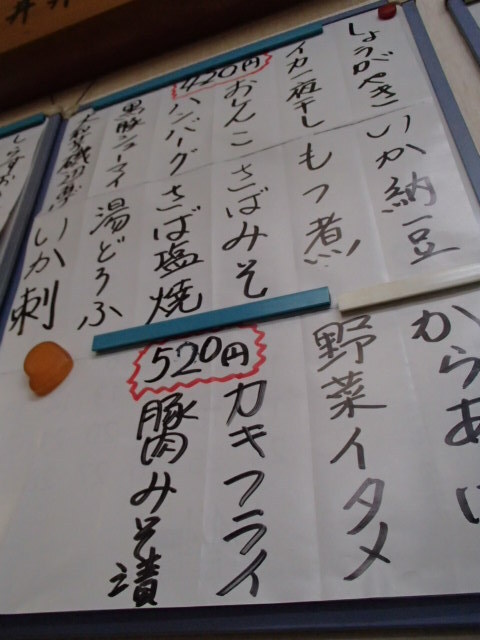 しょうがやき
イカ一夜干し
おしんこ
420円
ハンバーグ
黒豚シューマイ
いか納豆
もつ煮
さばみそ
さば塩焼
湯どうふ
いか刺
からあ
野菜イタメ
カキフライ
520円
豚肉みそ漬